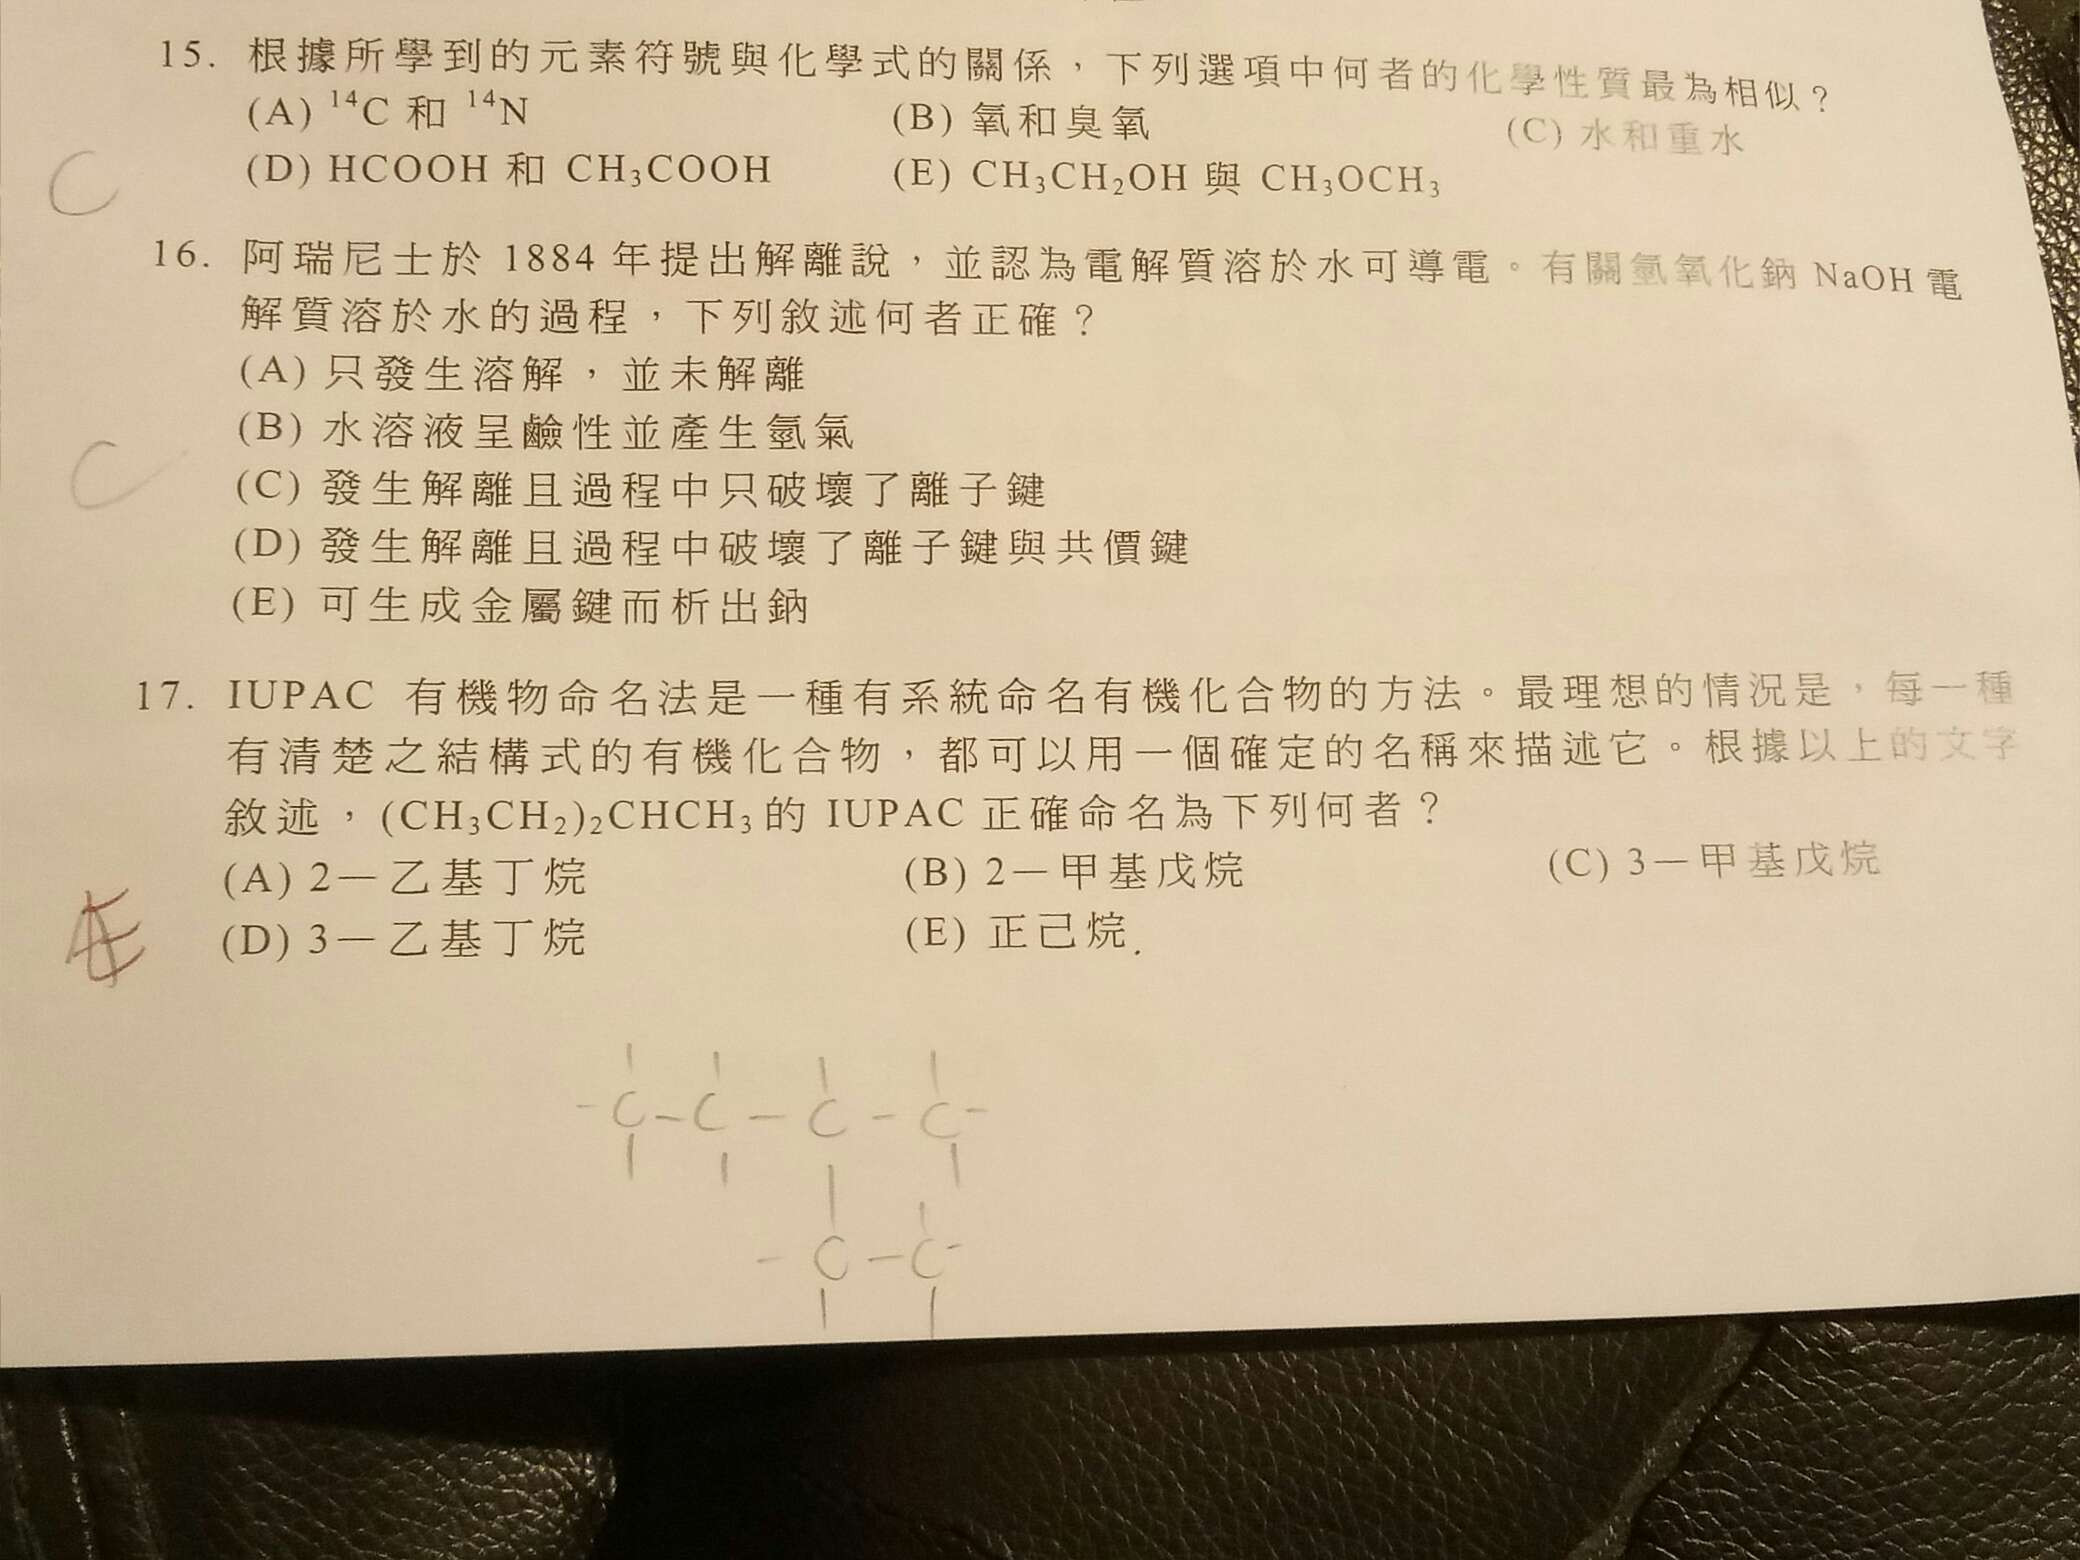 15. 根據所學到的元素符號與化學式的關係，下列選項中何者的化學性質最為相似？
(A) ¹⁴C 和 ¹⁴N (B) 氧和臭氧 (C) 水和重水
(D) HCOOH 和 CH₃COOH (E) CH₃CH₂OH 與 CH₃OCH₃
C
16. 阿瑞尼士於 1884 年提出解離說，並認為電解質溶於水可導電。有關氫氧化鈉 NaOH 電
解質溶於水的過程，下列敘述何者正確？
(A) 只發生溶解，並未解離
(B) 水溶液呈鹼性並產生氫氣
C
(C) 發生解離且過程中只破壞了離子鍵
(D) 發生解離且過程中破壞了離子鍵與共價鍵
(E) 可生成金屬鍵而析出鈉
17. IUPAC 有機物命名法是一種有系統命名有機化合物的方法。最理想的情況是，每一種
有清楚之結構式的有機化合物，都可以用一個確定的名稱來描述它。根據以上的文字
敘述，(CH₃CH₂)₂CHCH₃的 IUPAC 正確命名為下列何者？
(A) 2－乙基丁烷 (B) 2－甲基戊烷 (C) 3－甲基戊烷
(D) 3－乙基丁烷 (E) 正己烷.
-C-C-C-C-
-C-C-